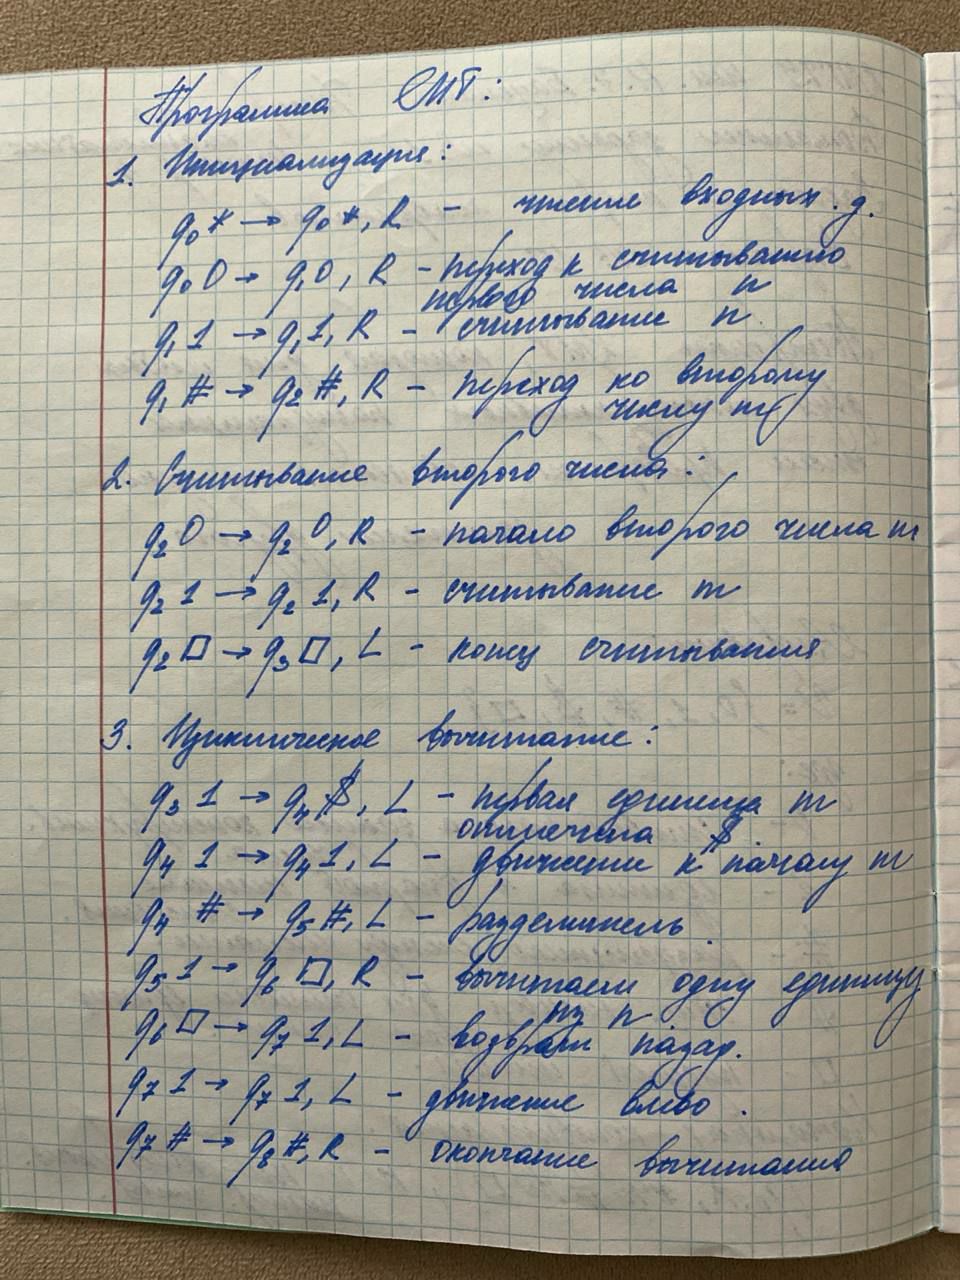 Программа ОМТ:
1. Инициализация:
q₀* → q₀*, R – чтение входных. д.
q₀0 → q₁0, R – переход к считыванию
первого числа n
q₁1 → q₁1, R – считывание n
q₁# → q₂#, R – переход ко второму
числу m
2. Считывание второго числа:
q₂0 → q₂0, R – начало второго числа m
q₂1 → q₂1, R – считывание m
q₂□ → q₃□, L – конец считывания
3. Циклическое вычитание:
q₃1 → q₄$, L – первая единица m
отмечена $
q₄1 → q₄1, L – движение к началу m
q₄# → q₅#, L – разделитель.
q₅1 → q₆□, R – вычитаем одну единицу
из n
q₆□ → q₇1, L – возврат назад.
q₇1 → q₇1, L – движение влево.
q₇# → q₈#, R – окончание вычитания